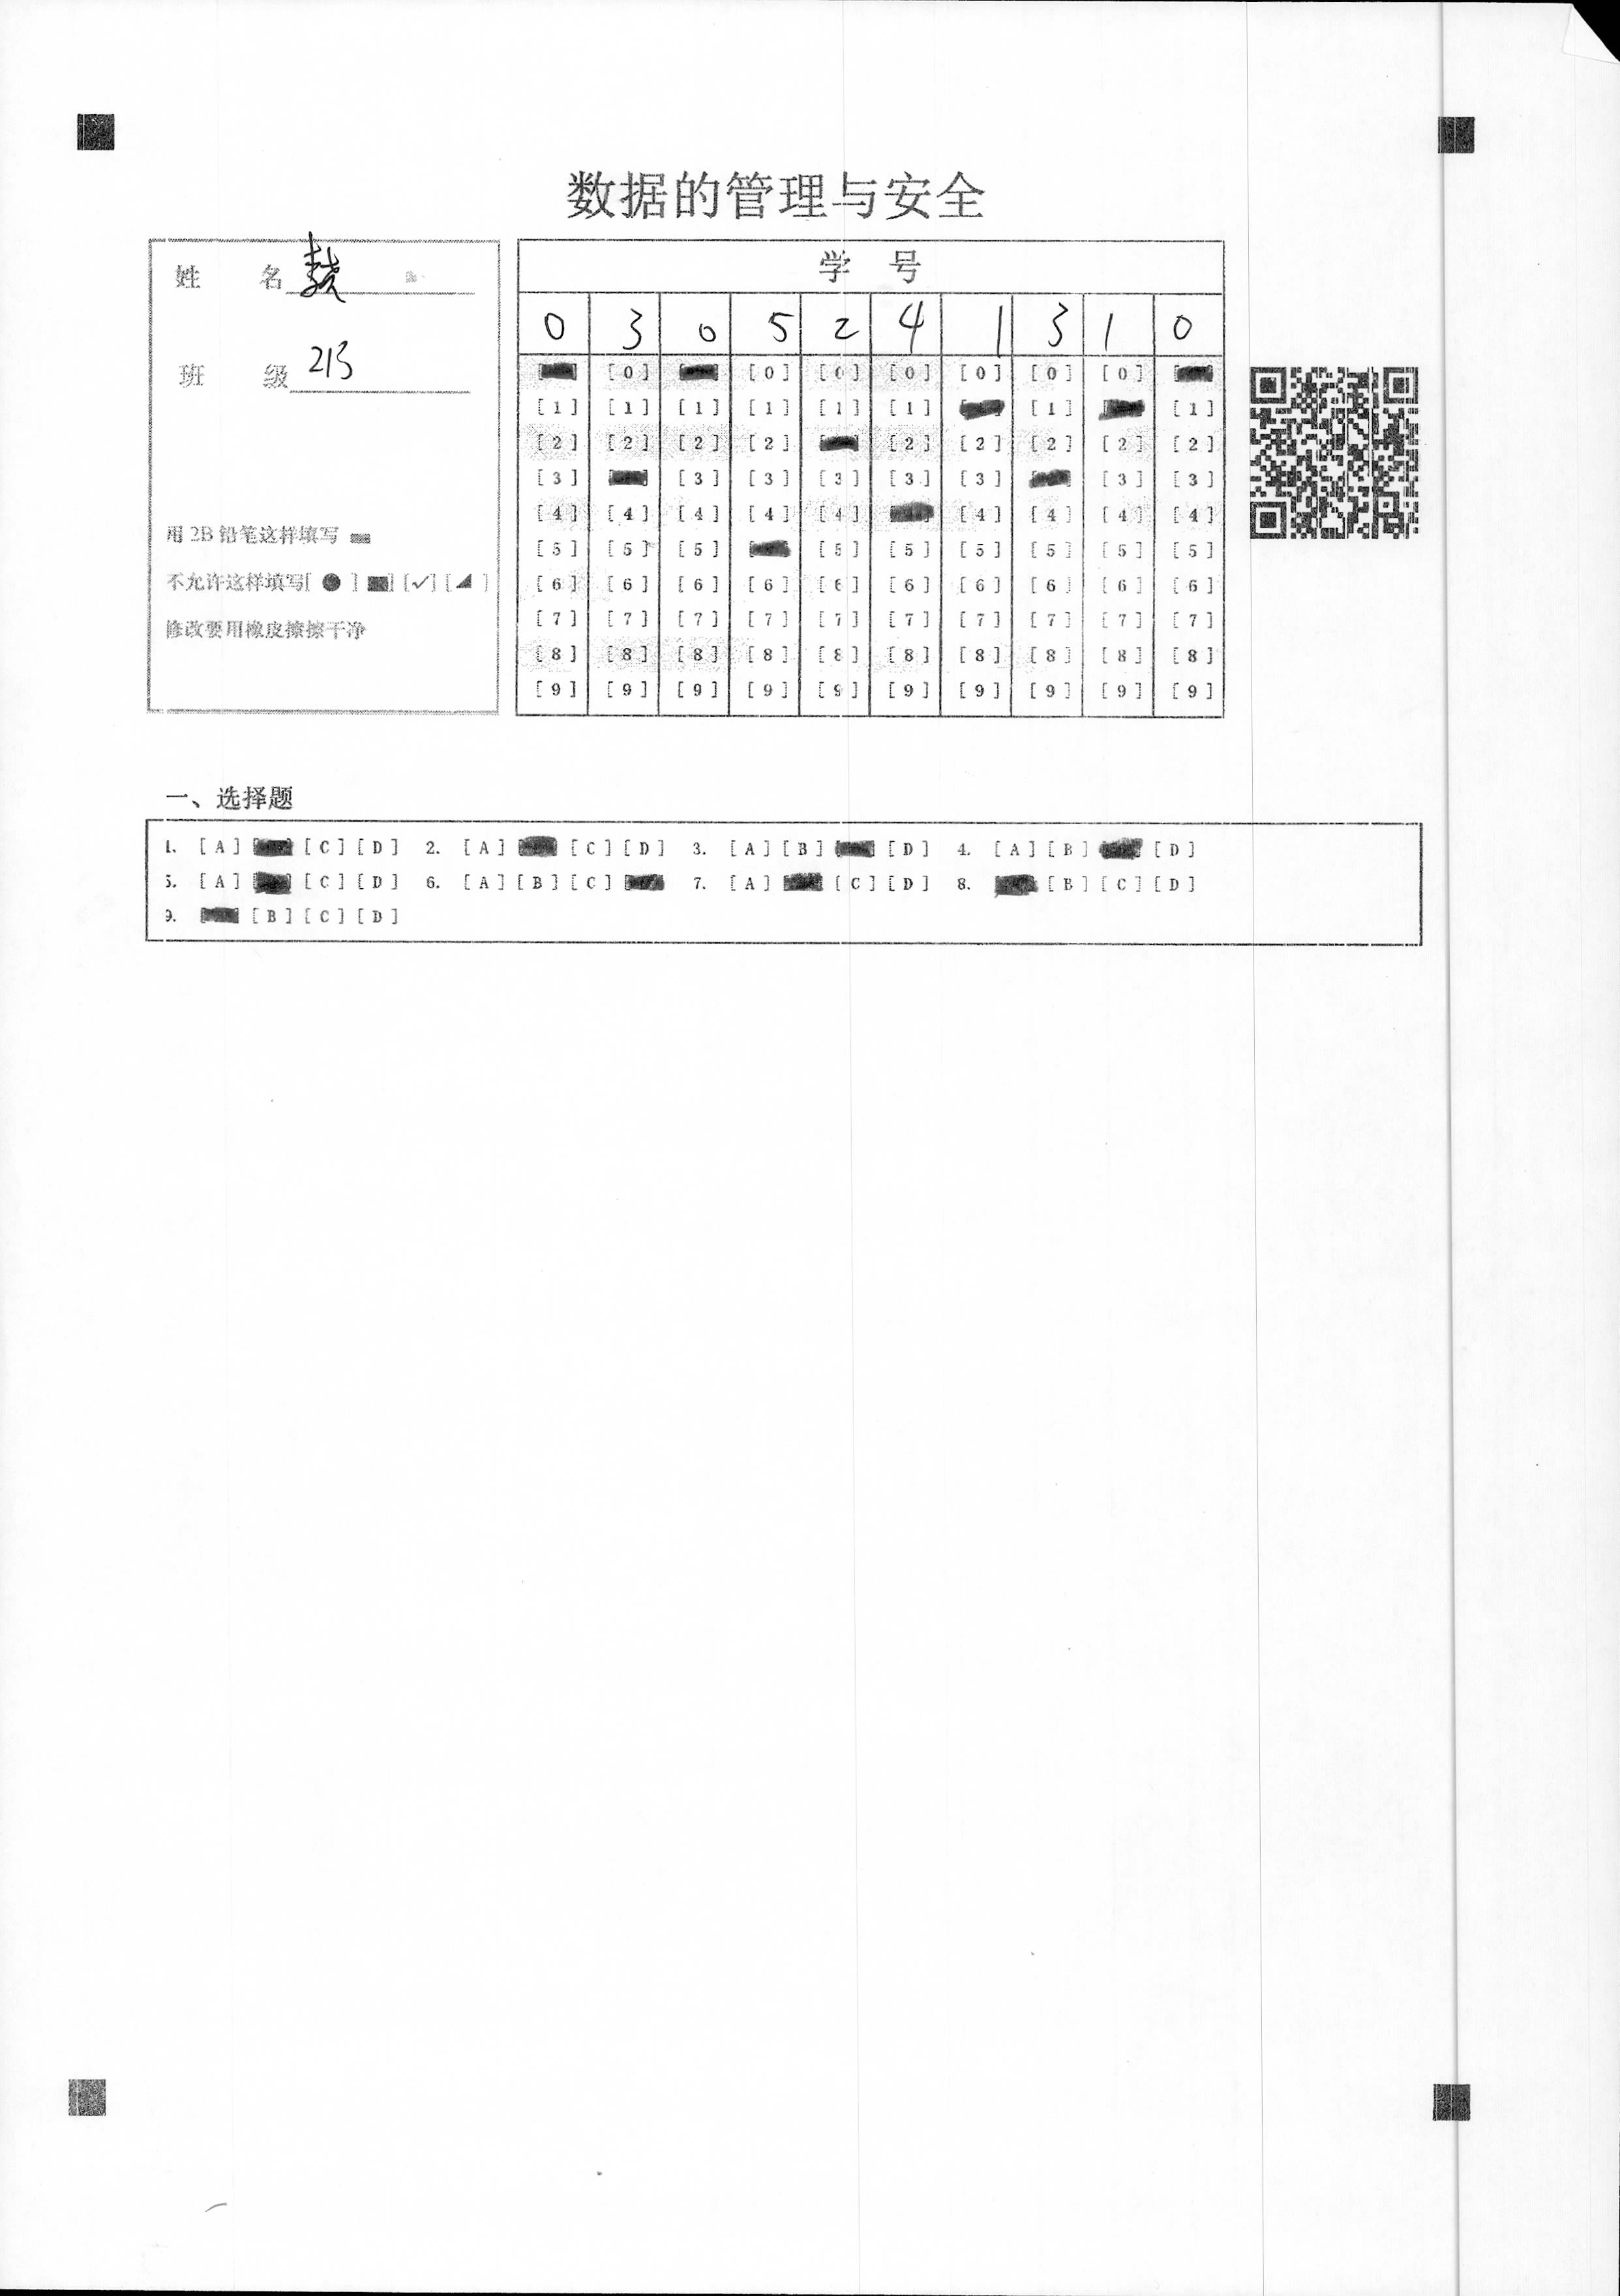 数据的管理与安全
姓 名
班 级 213
用 2B 铅笔这样填写
不允许这样填写[ ● ] [■] [✓] [◢ ]
修改要用橡皮擦擦干净
学 号
0 3 0 5 2 4 1 3 1 0
[0] [0] [0] [0] [0] [0] [0]
[1] [1] [1] [1] [1] [1] [1] [1]
[2] [2] [2] [2] [2] [2] [2] [2] [2]
[3] [3] [3] [3] [3] [3] [3] [3]
[4] [4] [4] [4] [4] [4] [4] [4] [4]
[5] [5] [5] [5] [5] [5] [5] [5] [5]
[6] [6] [6] [6] [6] [6] [6] [6] [6] [6]
[7] [7] [7] [7] [7] [7] [7] [7] [7] [7]
[8] [8] [8] [8] [8] [8] [8] [8] [8] [8]
[9] [9] [9] [9] [9] [9] [9] [9] [9] [9]
一、选择题
1. [A] [C] [D] 2. [A] [C] [D] 3. [A] [B] [D] 4. [A] [B] [D]
5. [A] [C] [D] 6. [A] [B] [C] 7. [A] [C] [D] 8. [B] [C] [D]
9. [B] [C] [D]